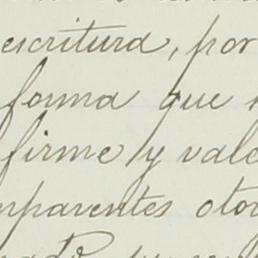 escritura, por
forma que
firme y vale
mparentes oto